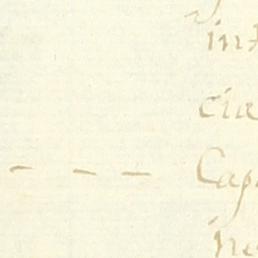 int
cia
- - - Cap
ne